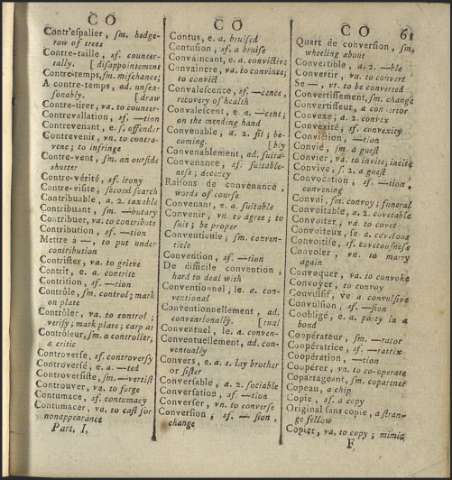 CO
CO
CO 61
Contr'espalier, sm. hedge-
row of trees
Contre-taille, sf. counter-
tally. [disappointement
Contre-temps, sm. mischance;
A contre-temps, ad. unsea-
sonably. [draw
Contre-tirer, va. to counter-
Contrevallation, sf. —tion
Contrevenant, e. s. offender
Contrevenir, vn. to contra-
vene; to infringe
Contre-vent, sm. an outside
shutter
Contre-vérité, sf. irony
Contre-visite, second search
Contribuable, a. 2. taxable
Contribuant, sm. —butary
Contribuer, va. to contribute
Contribution, sf. —tion
Mettre à —, to put under
contribution
Contrister, va. to grieve
Contrit, e. a. contrite
Contrition, sf. —tion
Contrôle, sm. control; mark
on plate
Contrôler, va. to control;
verify; mark plate; carp at
Contrôleur, sm. a controller,
a critic
Controverse, sf. controversy
Controversé, e. a. —ted
Controversiste, sm. —vertist
Controuver, va. to forge
Contumace, sf. contumacy
Contumacer, va. to cast for
nonappearance
Part. I.
Contus, e. a. bruised
Contusion, sf. a bruise
Convaincant, e. a. convictive
Convaincre, va. to convince;
to convict
Convalescence, sf. —cence,
recovery of health
Convalescent, e. a. —cent;
on the mending hand
Convenable, a. 2. fit; be-
coming.
Convenablement, ad. suita-
Convenance, sf. suitable-
ness; decency
Raisons de convenance,
words of course
Convenant, e. a. suitable
Convenir, vn. to agree; to
suit; be proper
Conventicule, sm. conven-
ticle
Convention, sf. —tion
De difficile convention,
hard to deal with
Conventionnel, le. a. con-
ventional
Conventionnellement, ad.
conventionally.
Conventuel, le. a. conven-
Conventuellement, ad. con-
ventually
Convers, e. a. s. lay brother
or sister
Conversable, a. 2. sociable
Conversation, sf. —tion
Converser, vn. to converse
Conversion, sf. —sion,
change
Quart de conversion, sm.
wheeling about
Convertible, a. 2. —ble
Convertir, va. to convert
Se —, vr. to be converted
Convertissement, sm. change
Convertisseur, a convertor
Convexe, a. 2. convex
Convexité, sf. convexity
Conviction, —tion
Convié, sm. a guest
Convier, va. to invite, incite
Convive, s. 2. a guest
Convocation, sf. —tion,
convening
Convoi, sm. convoy; funeral
Convoitable, a. 2. covetable
Convoiter, va. to covet
Convoiteux, se a. covetous
Convoitise, sf. covetousness
Convoler, vn. to marry
again
Convoquer, va. to convoke
Convoyer, to convoy
Convulsif, ve a convulsive
Convulsion, sf. —sion
Coobligé, e. a. party in a
bond
Coopérateur, sm. —rator
Coopératrice, sf. —ratrix
Coopération, —tion
Coopérer, va. to co-operate
Copartageant, sm. copartner
Copeau, a chip
Copie, sf. a copy
Original sans copie, a stran-
ge fellow
Copier, va. to copy; mimic
F